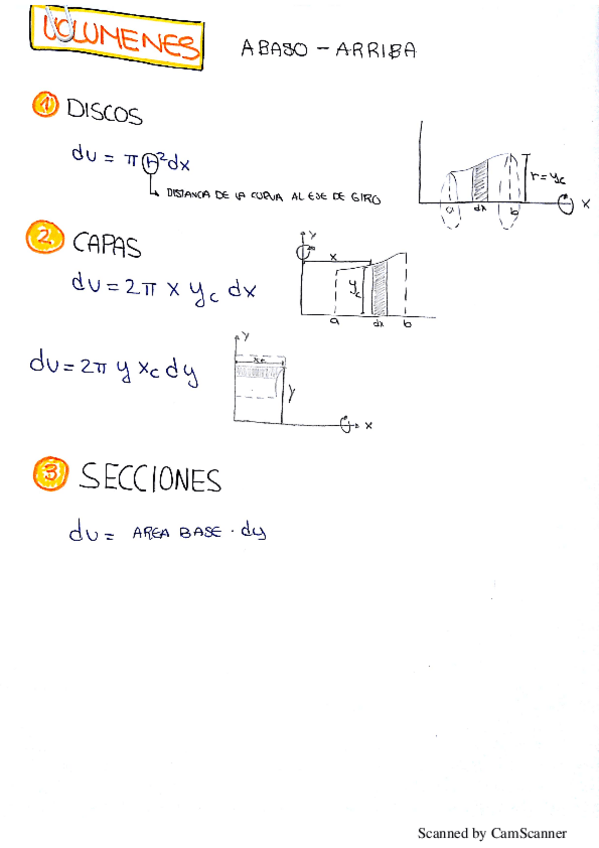 VOLUMENES
ABAJO - ARRIBA
1 DISCOS
dv = π r² dx
DISTANCIA DE LA CURVA AL EJE DE GIRO
r = yc
a dx b X
2 CAPAS
dv = 2π x yc dx
Y
x
yc
a dx b
dv = 2π y xc dy
Y
y
X
3 SECCIONES
dv = AREA BASE · dy
Scanned by CamScanner